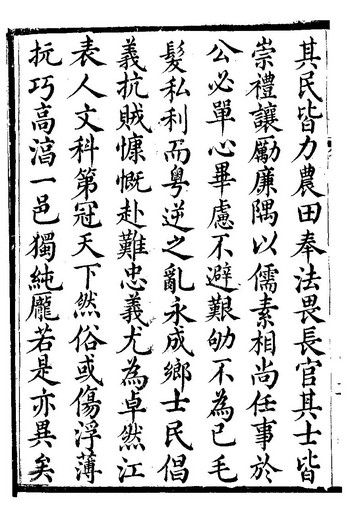 其民皆力農田奉法畏長官其士皆
崇禮讓勵廉隅以儒素相尚任事於
公必單心畢慮不避艱劬不為已毛
髮私利而粵逆之亂永成鄉士民倡
義抗賊慷慨赴難忠義尤為卓然江
表人文科第冠天下然俗或傷浮薄
抏巧高湻一邑獨純龐若是亦異矣